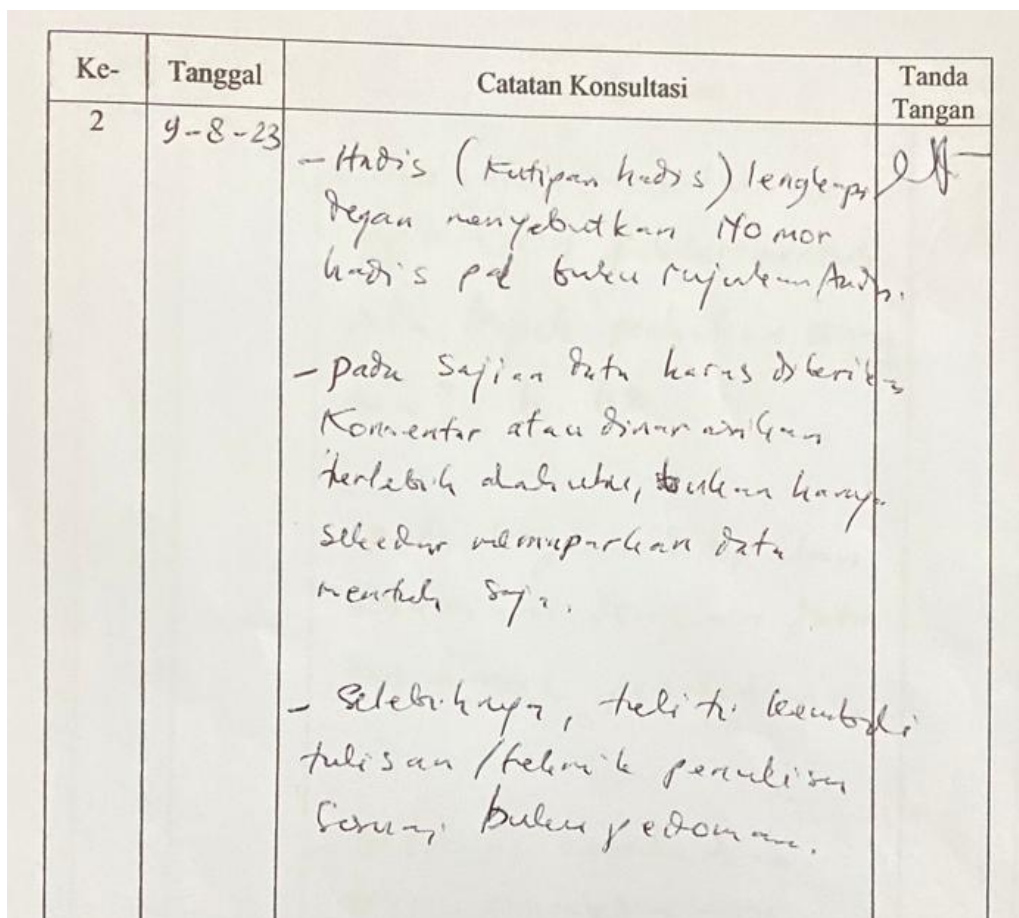 Ke- Tanggal Catatan Konsultasi Tanda Tangan
2 9-8-23
- Hadis (Kutipan hadis) lengkapi
degan menyebutkan Nomor
hadis pd buku rujukan Anda.
- pada Sajian data harus diberikan
Komentar atau dinarasikan
terlebih dahulu, bukan hanya
sekedar memaparkan data
mentah saja.
- Selebihnya, teliti kembali
tulisan / teknik penulisan
sesuai buku pedoman.